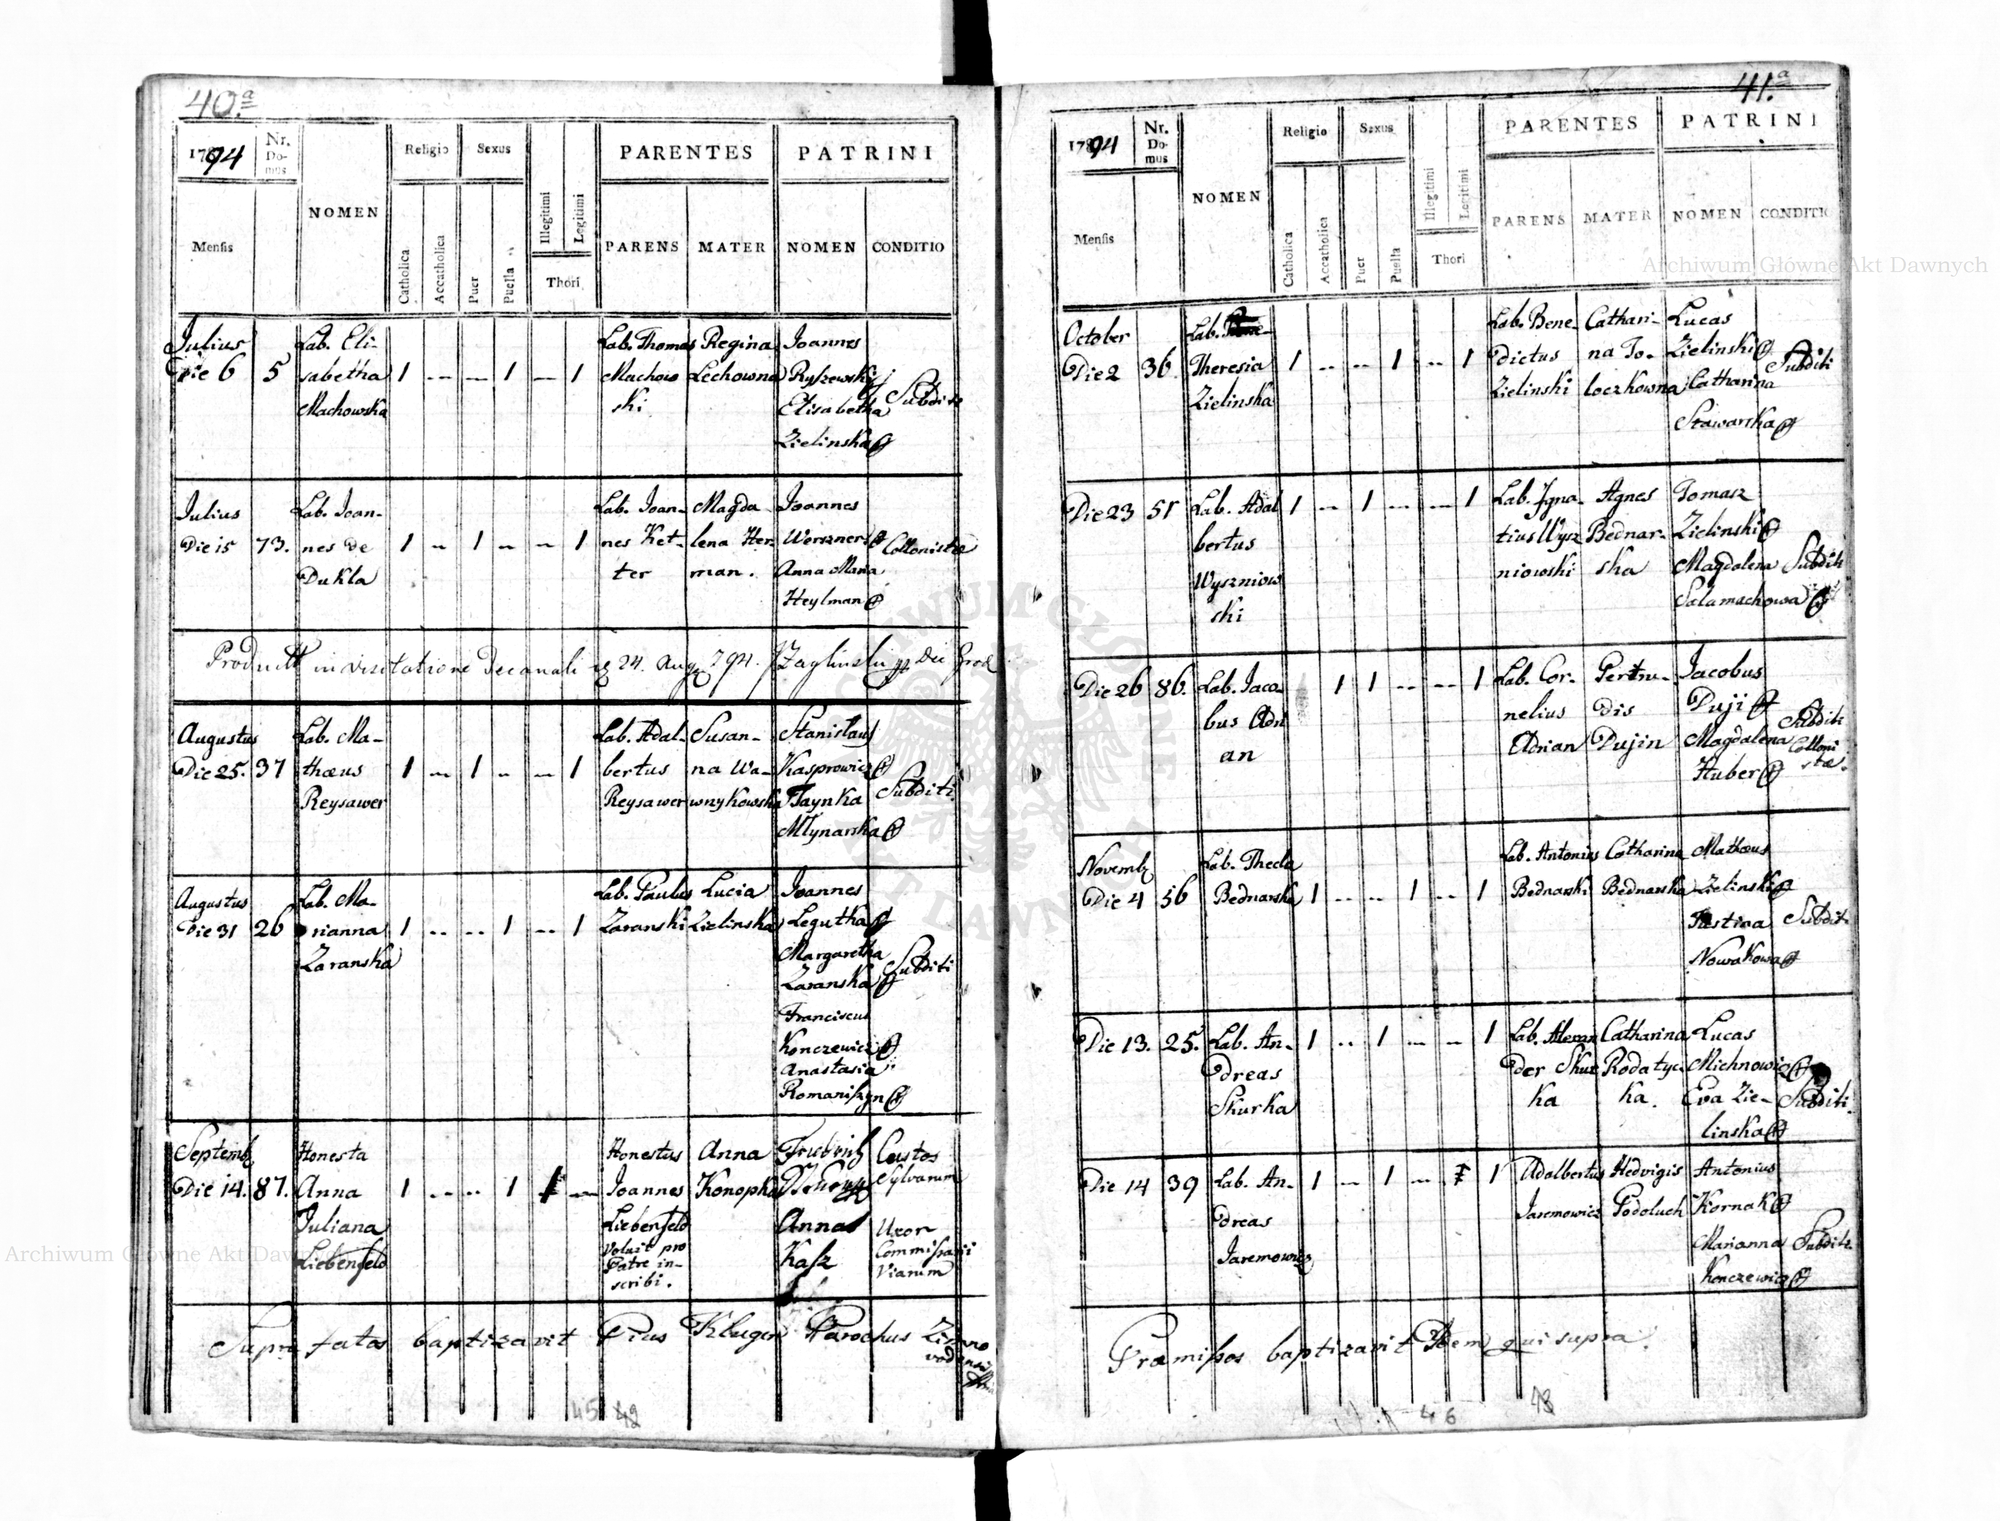 40.a
1794
Nr. Domus
NOMEN
Religio
Sexus
Illegitimi
Legitimi
PARENTES
PATRINI
Mensis
Catholica
Accatholica
Puer
Puella
Thori
PARENS
MATER
NOMEN
CONDITIO
Julius
Die 6
5
Lab. Eli-
sabetha
Machowska
1
1
1
Lab. Thomas
Machow
ski
Regina
Lechowna
Joannes
Ryszewski
Elisabetha
Zielinska
Subditi
Julius
Die 15
73.
Lab. Joan-
nes de
Dukla
1
1
1
Lab. Joan-
nes Ket-
ter
Magda-
lena Her-
man.
Joannes
Werszner
Anna Maria
Heylman
Collonistæ
in visitatione Decanali 24. 794.
Augustus
Die 25.
37
Lab. Ma-
thæus
Reysawer
1
1
1
Lab. Adal-
bertus
Reysawer
Susan-
na Wa-
wnykowska
Stanislaus
Kasprowicz
Taynka
Młynarska
Subditi
Augustus
Die 31
26
Lab. Ma-
rianna
Zaranska
1
1
1
Lab. Paulus
Zaranski
Lucia
Zielinska
Joannes
Legutka
Margaretha
Zaranska
Franciscus
Konczewicz
Anastasia
Romaniszyn
Subditi
Septemb
Die 14.
87.
Honesta
Anna
Juliana
Liebenfeld
1
1
1
Honestus
Joannes
Liebenfeld
voluit pro
Patre in-
scribi.
Anna
Konopka
Anna
Kasz
Custos
Sylvarum
Uxor
Commissarii
Viarum
Supra fatos baptizavit Pius Kluger Parochus
45 42
41.a
1794
Nr. Domus
NOMEN
Religio
Sexus
Illegitimi
Legitimi
PARENTES
PATRINI
Mensis
Catholica
Accatholica
Puer
Puella
Thori
PARENS
MATER
NOMEN
CONDITIO
October
Die 2
36
Lab.
Theresia
Zielinska
1
1
1
Lab. Bene-
dictus
Zielinski
Cathari-
na To-
loczkowna
Lucas
Zielinski
Catharina
Stawarska
Subditi
Die 23
51
Lab. Adal
bertus
Wyszniow
ski
1
1
1
Lab. Igna-
tius Wysz
niowski
Agnes
Bednar-
ska
Tomasz
Zielinski
Magdalena
Salamachowa
Subditi
Die 26
86.
Lab. Jaco-
bus Adri
an
1
1
1
Lab. Cor-
nelius
Adrian
Gertru-
dis
Dujin
Jacobus
Duji
Magdalena
Huber
Subditi
Colloni
stæ.
Novemb
Die 4
56
Lab. Thecla
Bednarska
1
1
1
Lab. Antonius
Bednarski
Catharina
Bednarska
Mathæus
Zielinski
Nowakowa
Subditi
Die 13.
25.
Lab. An-
dreas
Skurka
1
1
1
Lab. Alexan
der Skur
ka
Catharina
Rodatyc
ka.
Lucas
Michnowicz
Eva Zie-
linska
Subditi.
Die 14
39
Lab. An-
dreas
Jaremowicz
1
1
1
Adalbertus
Jaremowicz
Hedvigis
Podoluch
Antonius
Kornak
Marianna
Konczewicz
Subditi
Præmissos baptizavit Idem qui supra.
46
48
Archiwum Główne Akt Dawnych
Archiwum Główne Akt Dawnych